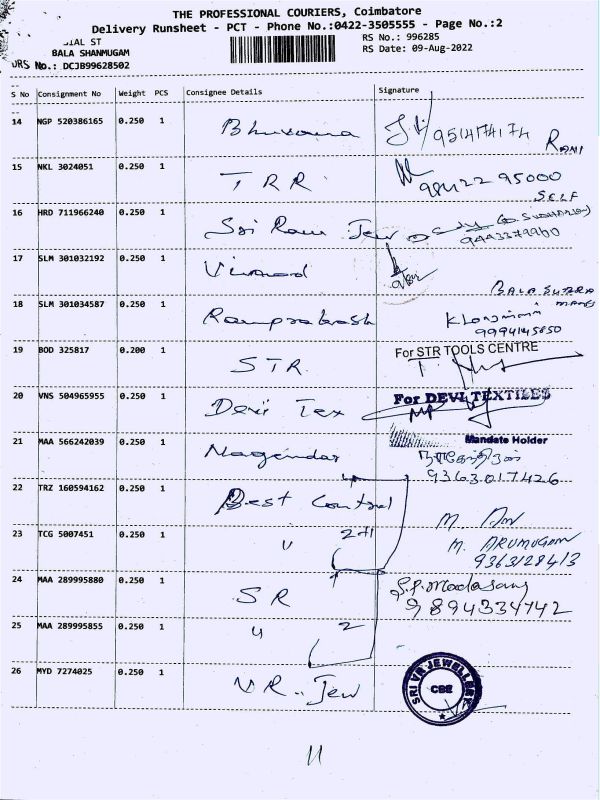 THE PROFESSIONAL COURIERS, Coimbatore
Delivery Runsheet - PCT - Phone No.:0422-3505555 - Page No.:2
IAL ST
RS No.: 996285
BALA SHANMUGAM
RS Date: 09-Aug-2022
DRS No.: DCJB99628502
S No Consignment No Weight PCS Consignee Details Signature
14 NGP 520386165 0.250 1 Bhuvana 9514174174 RAMI
15 NKL 3024051 0.250 1 TRR 98422 95000
SELF
16 HRD 711966240 0.250 1 Sri Ram Jew
9443379960
17 SLM 301032192 0.250 1 Vinnod
BALA SUBRA
18 SLM 301034587 0.250 1 Ramprakash
9994145850
19 BOD 325817 0.200 1 STR For STR TOOLS CENTRE
20 VNS 504965955 0.250 1 Devi Tex For DEVI TEXTILES
21 MAA 566242039 0.250 1 Nagendar Mandate Holder
நாகேந்திரன்
9363017426
22 TRZ 160594162 0.250 1 Best Control
23 TCG 5007451 0.250 1 u 2+1
M. ARUMUGAM
9363128413
24 MAA 289995880 0.250 1 SR S.P. Madasamy
9894334742
25 MAA 289995855 0.250 1 u 2
26 MYD 7274025 0.250 1 VR.. Jew SRI VR JEWELLERY CBE
11